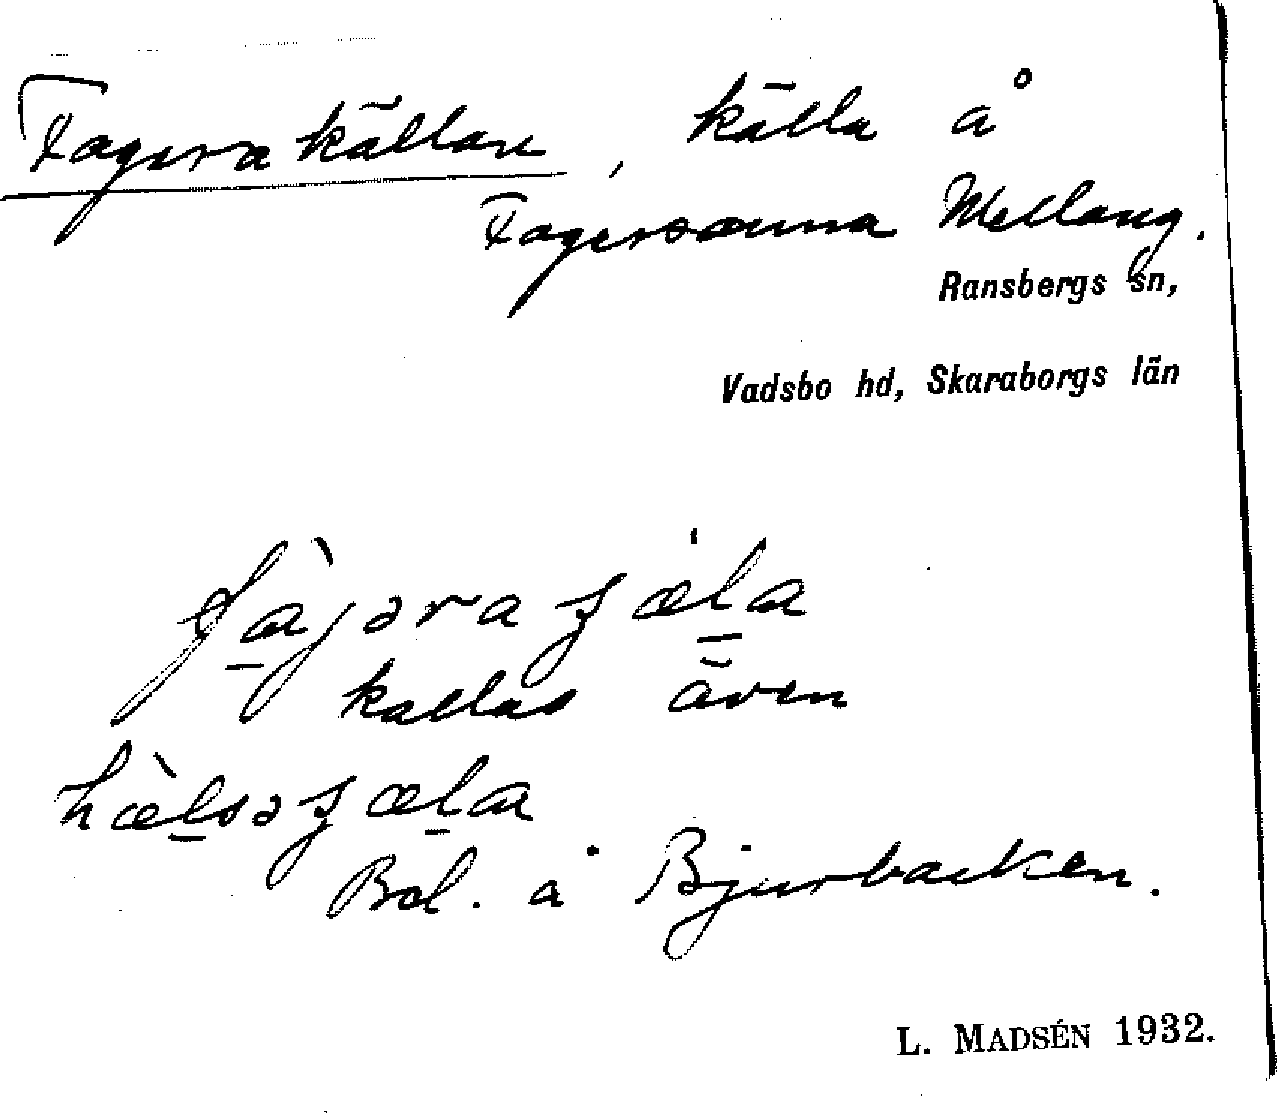 Fagera källan, källa å
Fagersanna Mellang.
Ransbergs sn,
Vadsbo hd, Skaraborgs län
fàjəra ʒæ̍la
kallas även
hæ̀lsəʒæla
Bel. å Bjurbacken.
L. MADSÉN 1932.